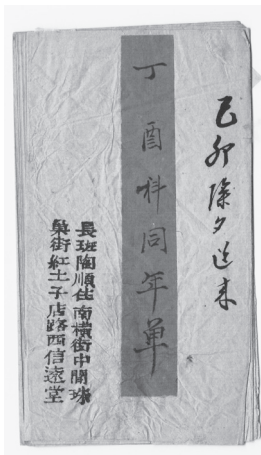 己卯除夕送来
丁酉科同年单
長班陶順住南橫街中間珠
巢街紅土子店路西信遠堂